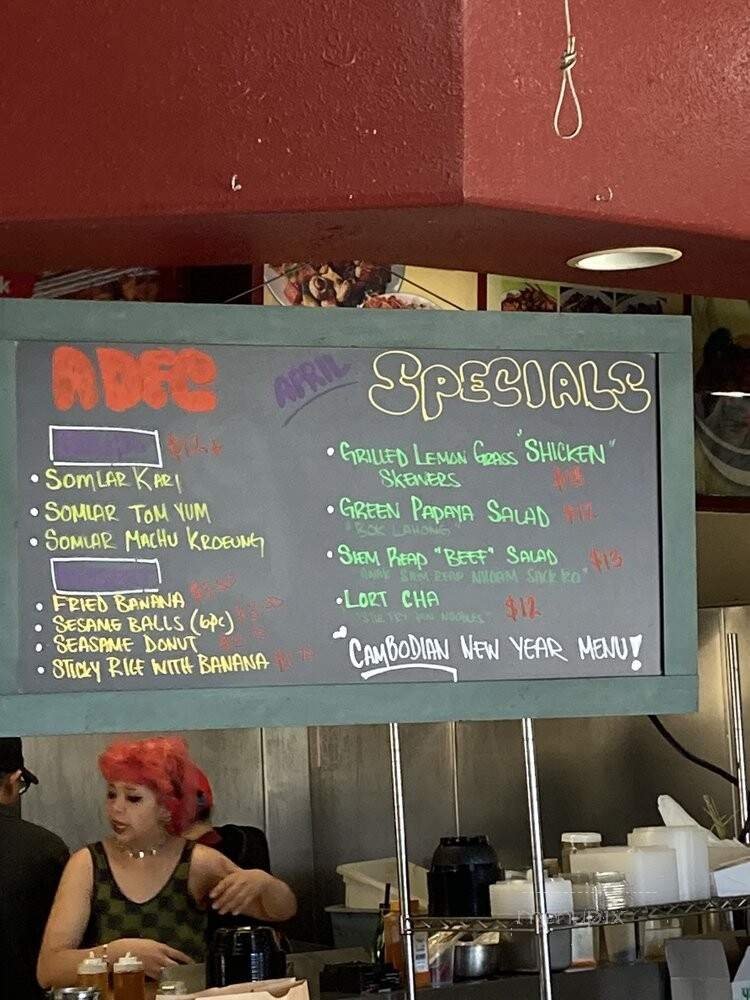 ADFC
APRIL
SPECIALS
• SOMLAR KARI
• SOMLAR TOM YUM
• SOMLAR MACHU KROEUNG
• FRIED BANANA
• SESAME BALLS (6PC)
• SEASAME DONUT
• STICKY RICE WITH BANANA
• GRILLED LEMON GRASS "SHICKEN"
SKEWERS
• GREEN PAPAYA SALAD $12
"BOK LAHONG"
• SIEM REAP "BEEF" SALAD $13
• LORT CHA $12
"CAMBODIAN NEW YEAR MENU!
menupix